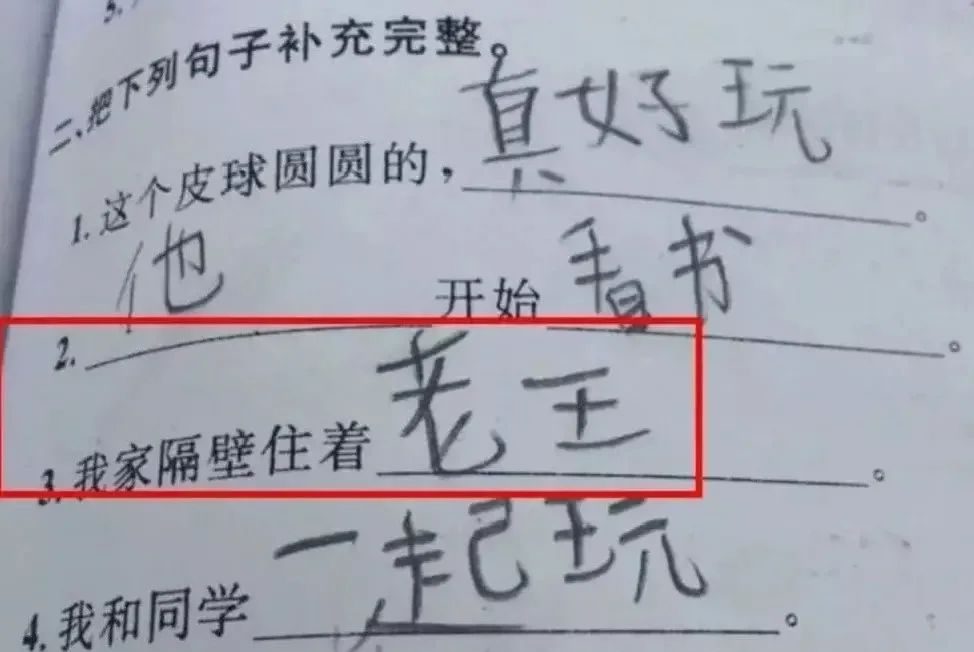 二、把下列句子补充完整。
1.这个皮球圆圆的，真好玩。
2.他开始看书。
3.我家隔壁住着老王。
4.我和同学一起玩。